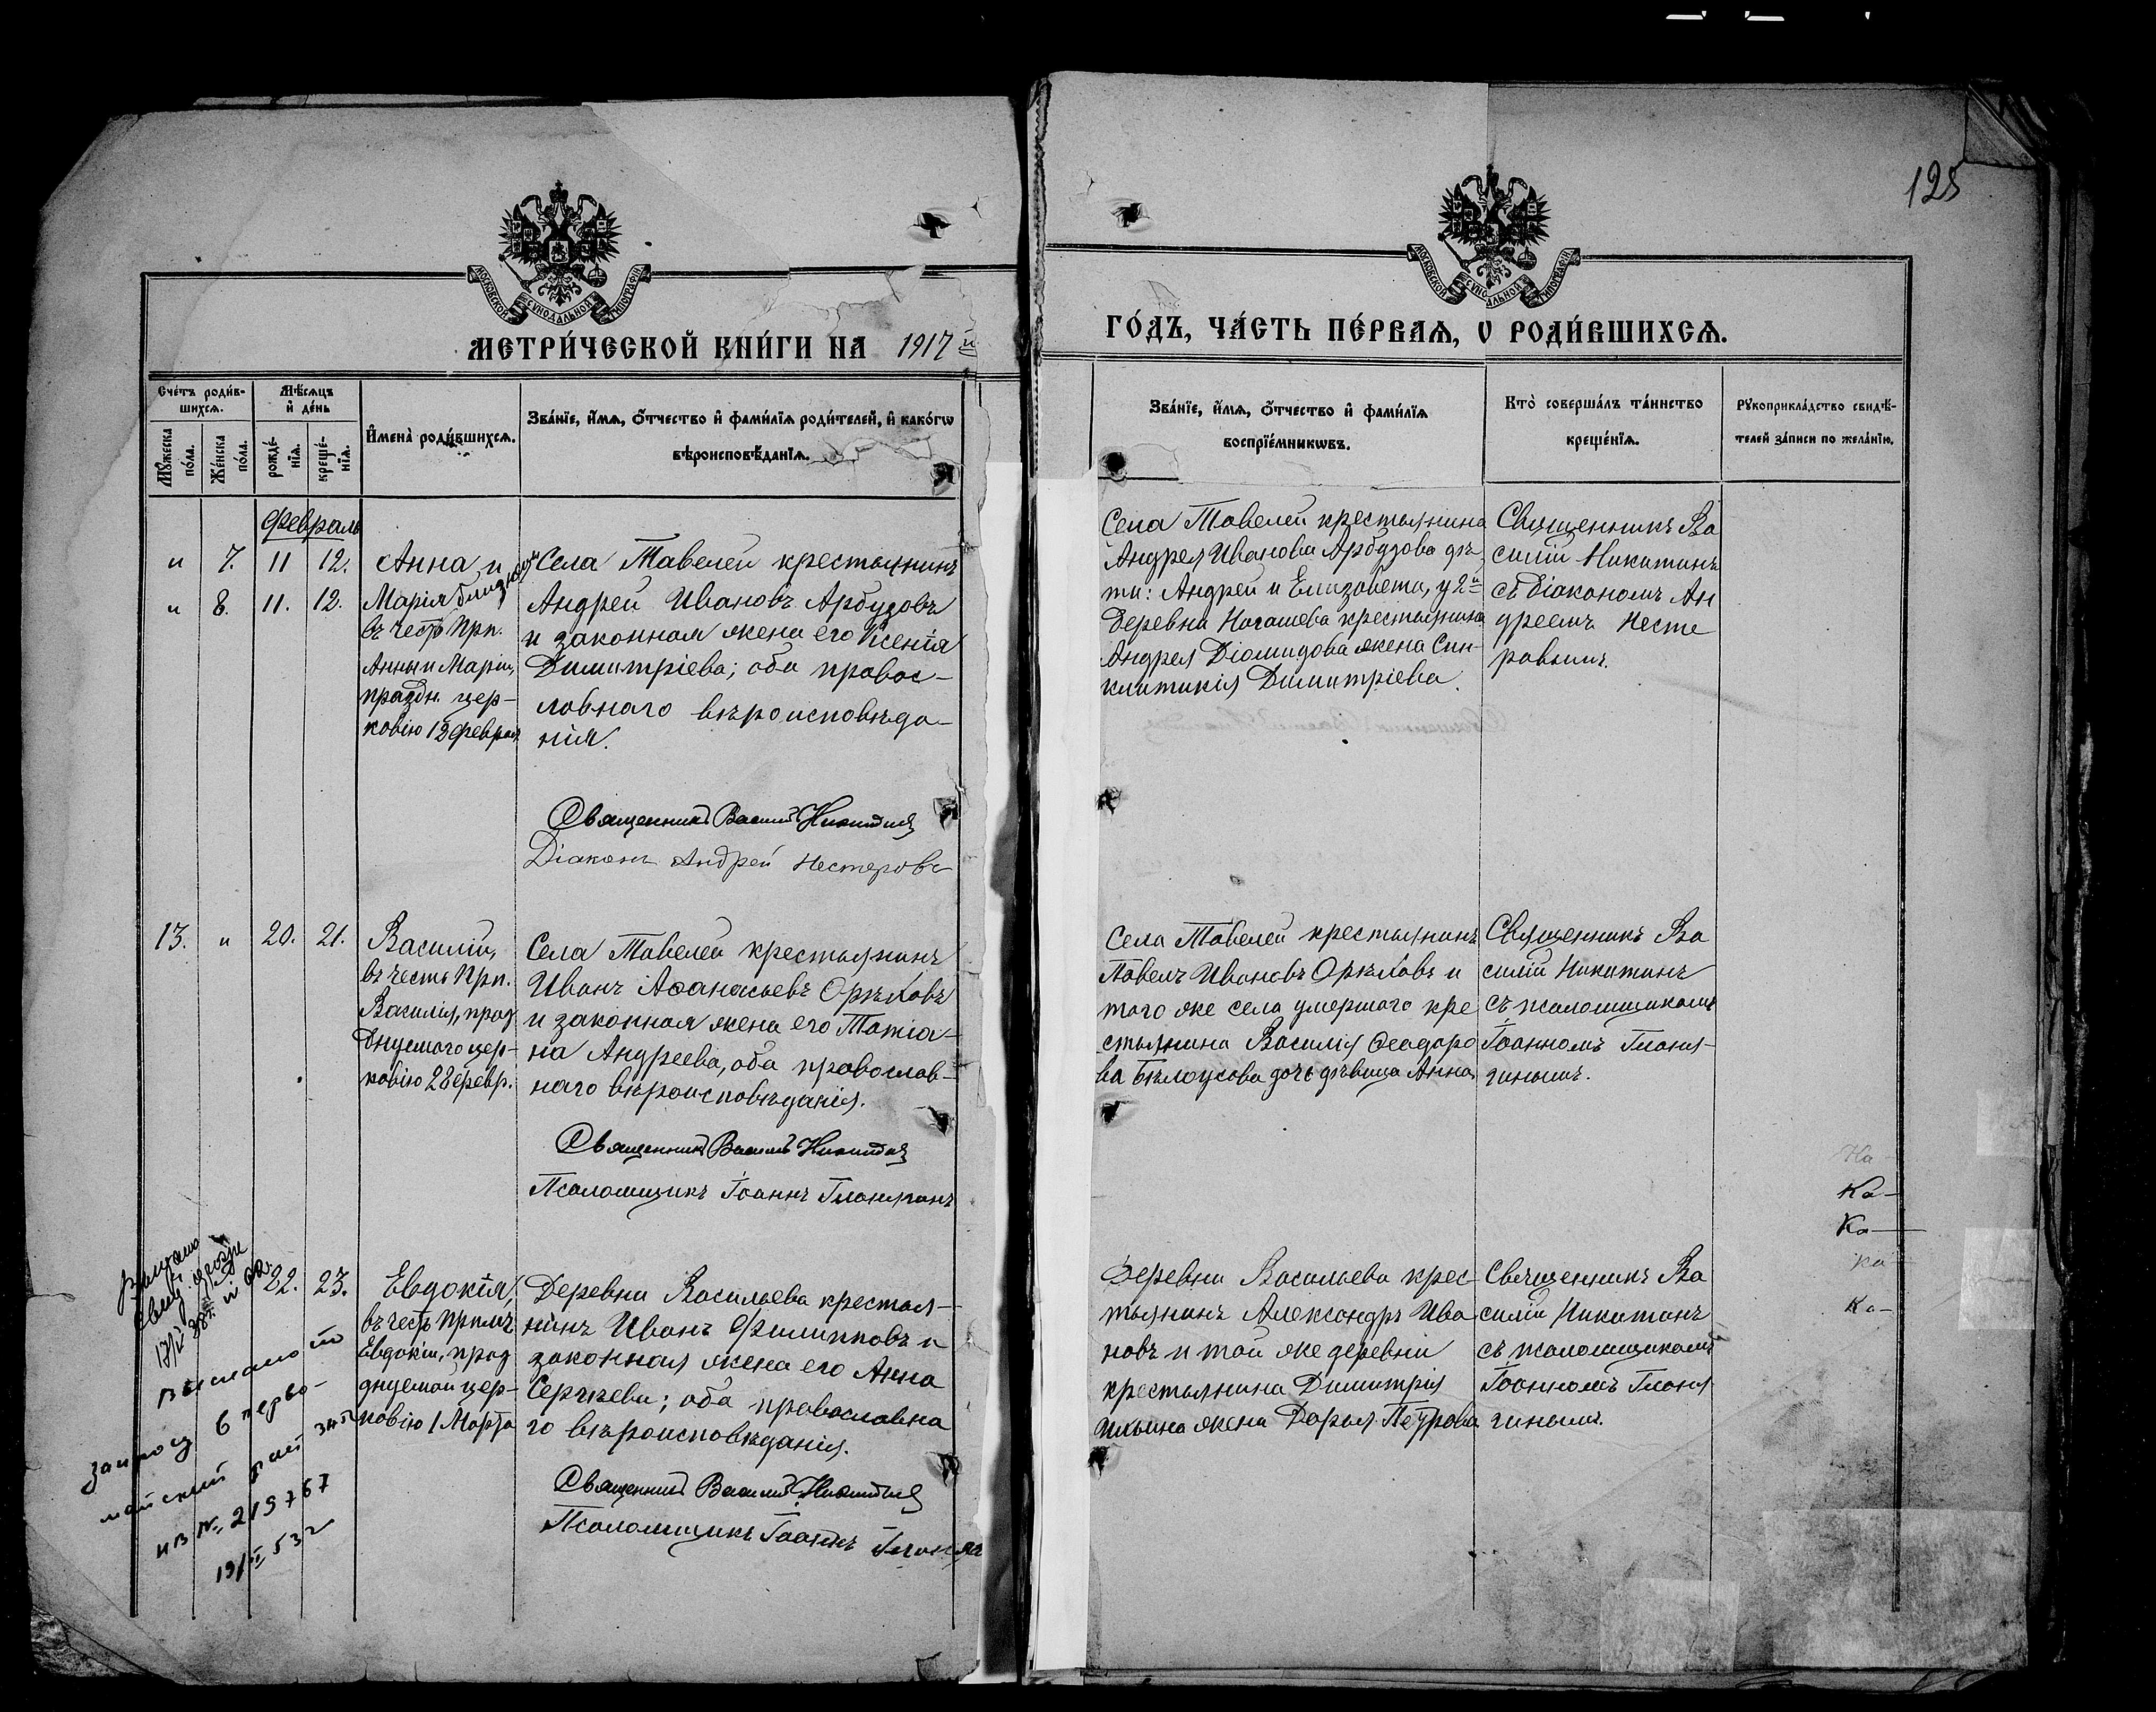 125
МОСКОВСКОЙ СУНОДАЛЬНОЙ ТИПОГРАФІИ
МОСКОВСКОЙ СУНОДАЛЬНОЙ ТИПОГРАФІИ
МЕТРИ́ЧЕСКОЙ КНИ́ГИ НА 1917 й
ГО́ДЪ, ЧА́СТЬ ПЕ́РВАѦ, Ѡ РОДИ́ВШИХСѦ.
Сче́тъ роди́в-
шихсѧ.
Мѣ́сѧцъ
и҆ де́нь
Мꙋ́жеска
по́ла.
Же́нска
по́ла.
рожде́-
нїѧ.
креще́-
нїѧ.
И҆мена̀ роди́вшихсѧ.
Зва́нїе, и҆́мѧ, ѻ҆́тчество и҆ фами́лїѧ роди́телей, и҆ како́гѡ
вѣроисповѣ́данїѧ.
Зва́нїе, и҆́мѧ, ѻ҆́тчество и҆ фами́лїѧ
воспрїе́мникѡвъ.
Кто̀ соверша́лъ та́инство
креще́нїѧ.
Рꙋкоприкла́дство свидѣ́-
телей за́писи по жела́нїю.
Февраль
" 7. 11 12.
" 8. 11. 12.
Анна и
Марія близнецы
въ честь Прп.
Анны и Маріи,
праздн. цер-
ковію 12 феврал.
Села Тавелей крестьянинъ
Андрей Ивановъ Арбузовъ
и законная жена его Ксенія
Димитріева; оба правос-
лавнаго вѣроисповѣда-
нія.
Священникъ Василій Никитинъ
Діаконъ Андрей Нестеровъ
Села Тавелей крестьянина
Андрея Иванова Арбузова дѣ-
ти: Андрей и Елизавета, у 2й
Деревни Ногашева крестьянина
Андрея Діомидова жена Син-
клитикія Димитріева.
Священникъ Ва
силій Никитинъ
съ діакономъ Ан
дреемъ Несте
ровымъ.
13. " 20. 21.
Василій,
въ честь Прп.
Василія, празд
днуемаго цер-
ковію 28 февр.
Села Тавелей крестьянинъ
Иванъ Аѳанасьевъ Орѣховъ
и законная жена его Татіа-
на Андреева, оба православ-
наго вѣроисповѣданія.
Священникъ Василій Никитинъ
Псаломщикъ Іоаннъ Глонягинъ
Села Тавелей крестьянинъ
Павелъ Ивановъ Орѣховъ и
того же села умершаго кре
стьянина Василія Ѳеодоро
ва Бѣлоусова дочь дѣвица Анна
Священникъ Ва
силій Никитинъ
съ псаломщикомъ
Іоанномъ Глоня-
гинымъ.
22. 23.
Евдокія,
въ честь Прпмч.
Евдокіи, празд
днуемой цер-
ковію 1 Марта
Деревни Васильева крестья-
нинъ Иванъ Филипповъ и
законная жена его Анна
Сергѣева; оба православна
го вѣроисповѣданія.
Священникъ Василій Никитинъ
Псаломщикъ Іоаннъ
Деревни Васильева крес-
тьянинъ Александръ Ива
новъ и той же деревни
крестьянина Димитрія
Ильина жена Дарья Петрова
Священникъ Ва
силій Никитинъ
съ псаломщикомъ
Іоанномъ Глоня
гинымъ.
Ка-
Ка-
Ка-
Ка-
в перво-
майский
ИВ № 219767
19/II 53 г